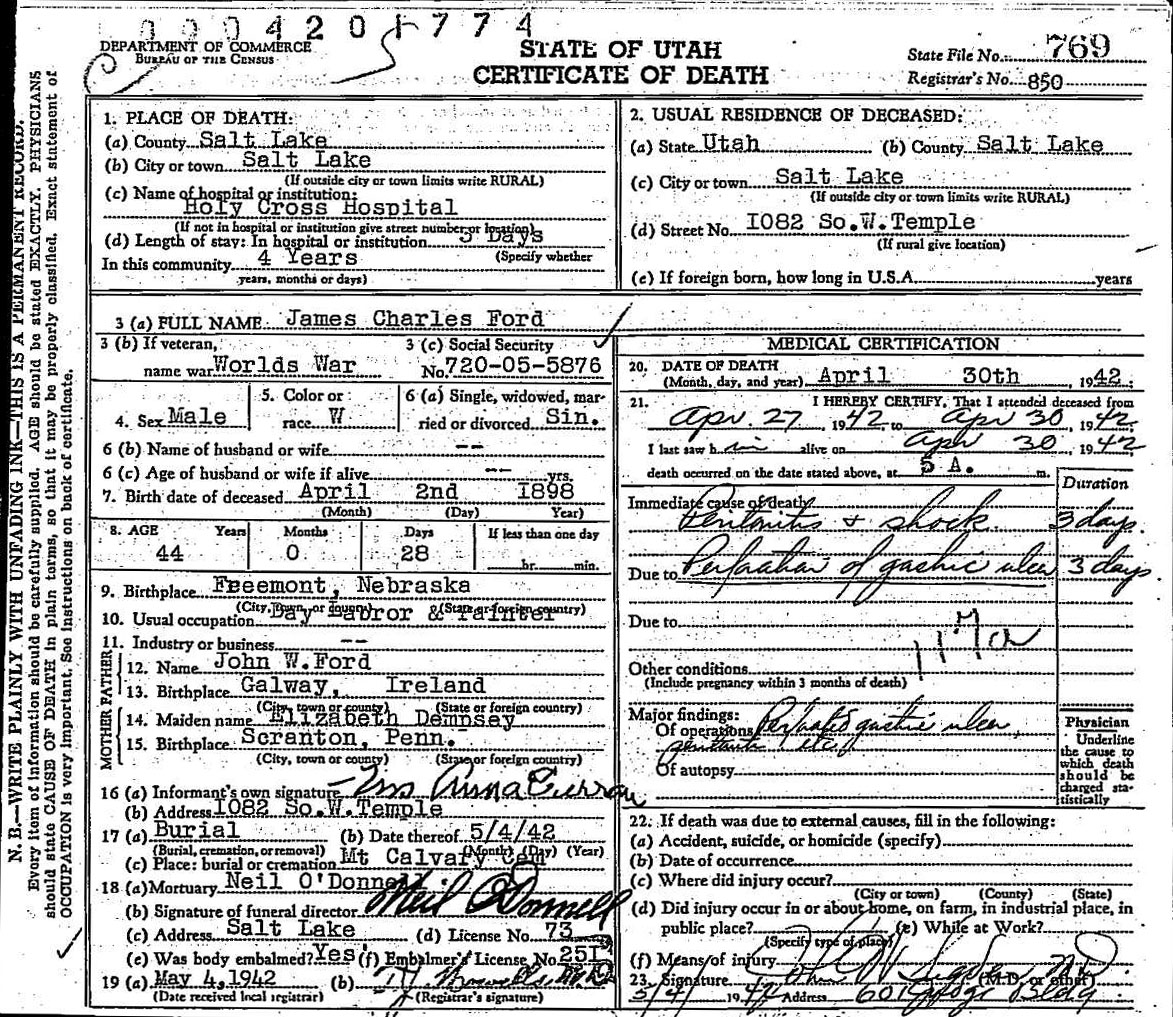 0004201774
DEPARTMENT OF COMMERCE
BUREAU OF THE CENSUS
STATE OF UTAH
CERTIFICATE OF DEATH
State File No. 769
Registrar's No. 850
N. B.—WRITE PLAINLY WITH UNFADING INK—THIS IS A PERMANENT RECORD.
Every item of information should be carefully supplied. AGE should be stated EXACTLY. PHYSICIANS
should state CAUSE OF DEATH in plain terms, so that it may be properly classified. Exact statement of
OCCUPATION is very important. See instructions on back of certificate.
1. PLACE OF DEATH:
(a) County Salt Lake
(b) City or town Salt Lake
(If outside city or town limits write RURAL)
(c) Name of hospital or institution:
Holy Cross Hospital
(If not in hospital or institution give street number or location)
(d) Length of stay: In hospital or institution 3 Days
In this community 4 Years (Specify whether
years, months or days)
2. USUAL RESIDENCE OF DECEASED:
(a) State Utah (b) County Salt Lake
(c) City or town Salt Lake
(If outside city or town limits write RURAL)
(d) Street No. I082 So.W.Temple
(If rural give location)
(e) If foreign born, how long in U.S.A. years
3 (a) FULL NAME James Charles Ford
3 (b) If veteran, 3 (c) Social Security
name war Worlds War No. 720-05-5876
4. Sex Male 5. Color or race W 6 (a) Single, widowed, married or divorced Sin.
6 (b) Name of husband or wife --
6 (c) Age of husband or wife if alive -- yrs.
7. Birth date of deceased April 2nd I898
(Month) (Day) Year)
8. AGE Years Months Days If less than one day
44 0 28 hr. min.
9. Birthplace Freemont, Nebraska
(City, town, or county) (State or foreign country)
10. Usual occupation Day Labror & Painter
11. Industry or business --
FATHER
12. Name John W.Ford
13. Birthplace Galway, Ireland
(City, town or county) (State or foreign country)
MOTHER
14. Maiden name Elizabeth Dempsey
15. Birthplace Scranton, Penn.
(City, town or county) (State or foreign country)
16 (a) Informant's own signature Mrs Anna Curran
(b) Address I082 So.W.Temple
17 (a) Burial (b) Date thereof 5/4/42
(Burial, cremation, or removal) (Month) (Day) (Year)
(c) Place: burial or cremation Mt Calvary Cem
18 (a) Mortuary Neil O'Donnell
(b) Signature of funeral director Neil O'Donnell
(c) Address Salt Lake (d) License No. 73
(e) Was body embalmed? Yes (f) Embalmer's License No. 25I
19 (a) May 4,1942 (b) M.D.
(Date received local registrar) (Registrar's signature)
MEDICAL CERTIFICATION
20. DATE OF DEATH
(Month, day, and year) April 30th, 1942.
21. I HEREBY CERTIFY, That I attended deceased from
Apr. 27 1942 to Apr 30, 1942
I last saw him alive on Apr 30, 1942
death occurred on the date stated above, at 5 A. m.
Duration
Immediate cause of death
Peritonitis & shock. 3 days.
Due to Perforation of gastric ulcer 3 days.
Due to
117a
Other conditions
(Include pregnancy within 3 months of death)
Major findings:
Of operations Perforated gastric ulcer,
peritonitis etc
Of autopsy
Physician
Underline
the cause to
which death
should be
charged sta-
tistically
22. If death was due to external causes, fill in the following:
(a) Accident, suicide, or homicide (specify)
(b) Date of occurrence
(c) Where did injury occur?
(City or town) (County) (State)
(d) Did injury occur in or about home, on farm, in industrial place, in
public place? (e) While at Work?
(Specify type of place)
(f) Means of injury
23. Signature John M.D.
(M.D. or other)
5/4/ 1942 Address 601 Bldg.